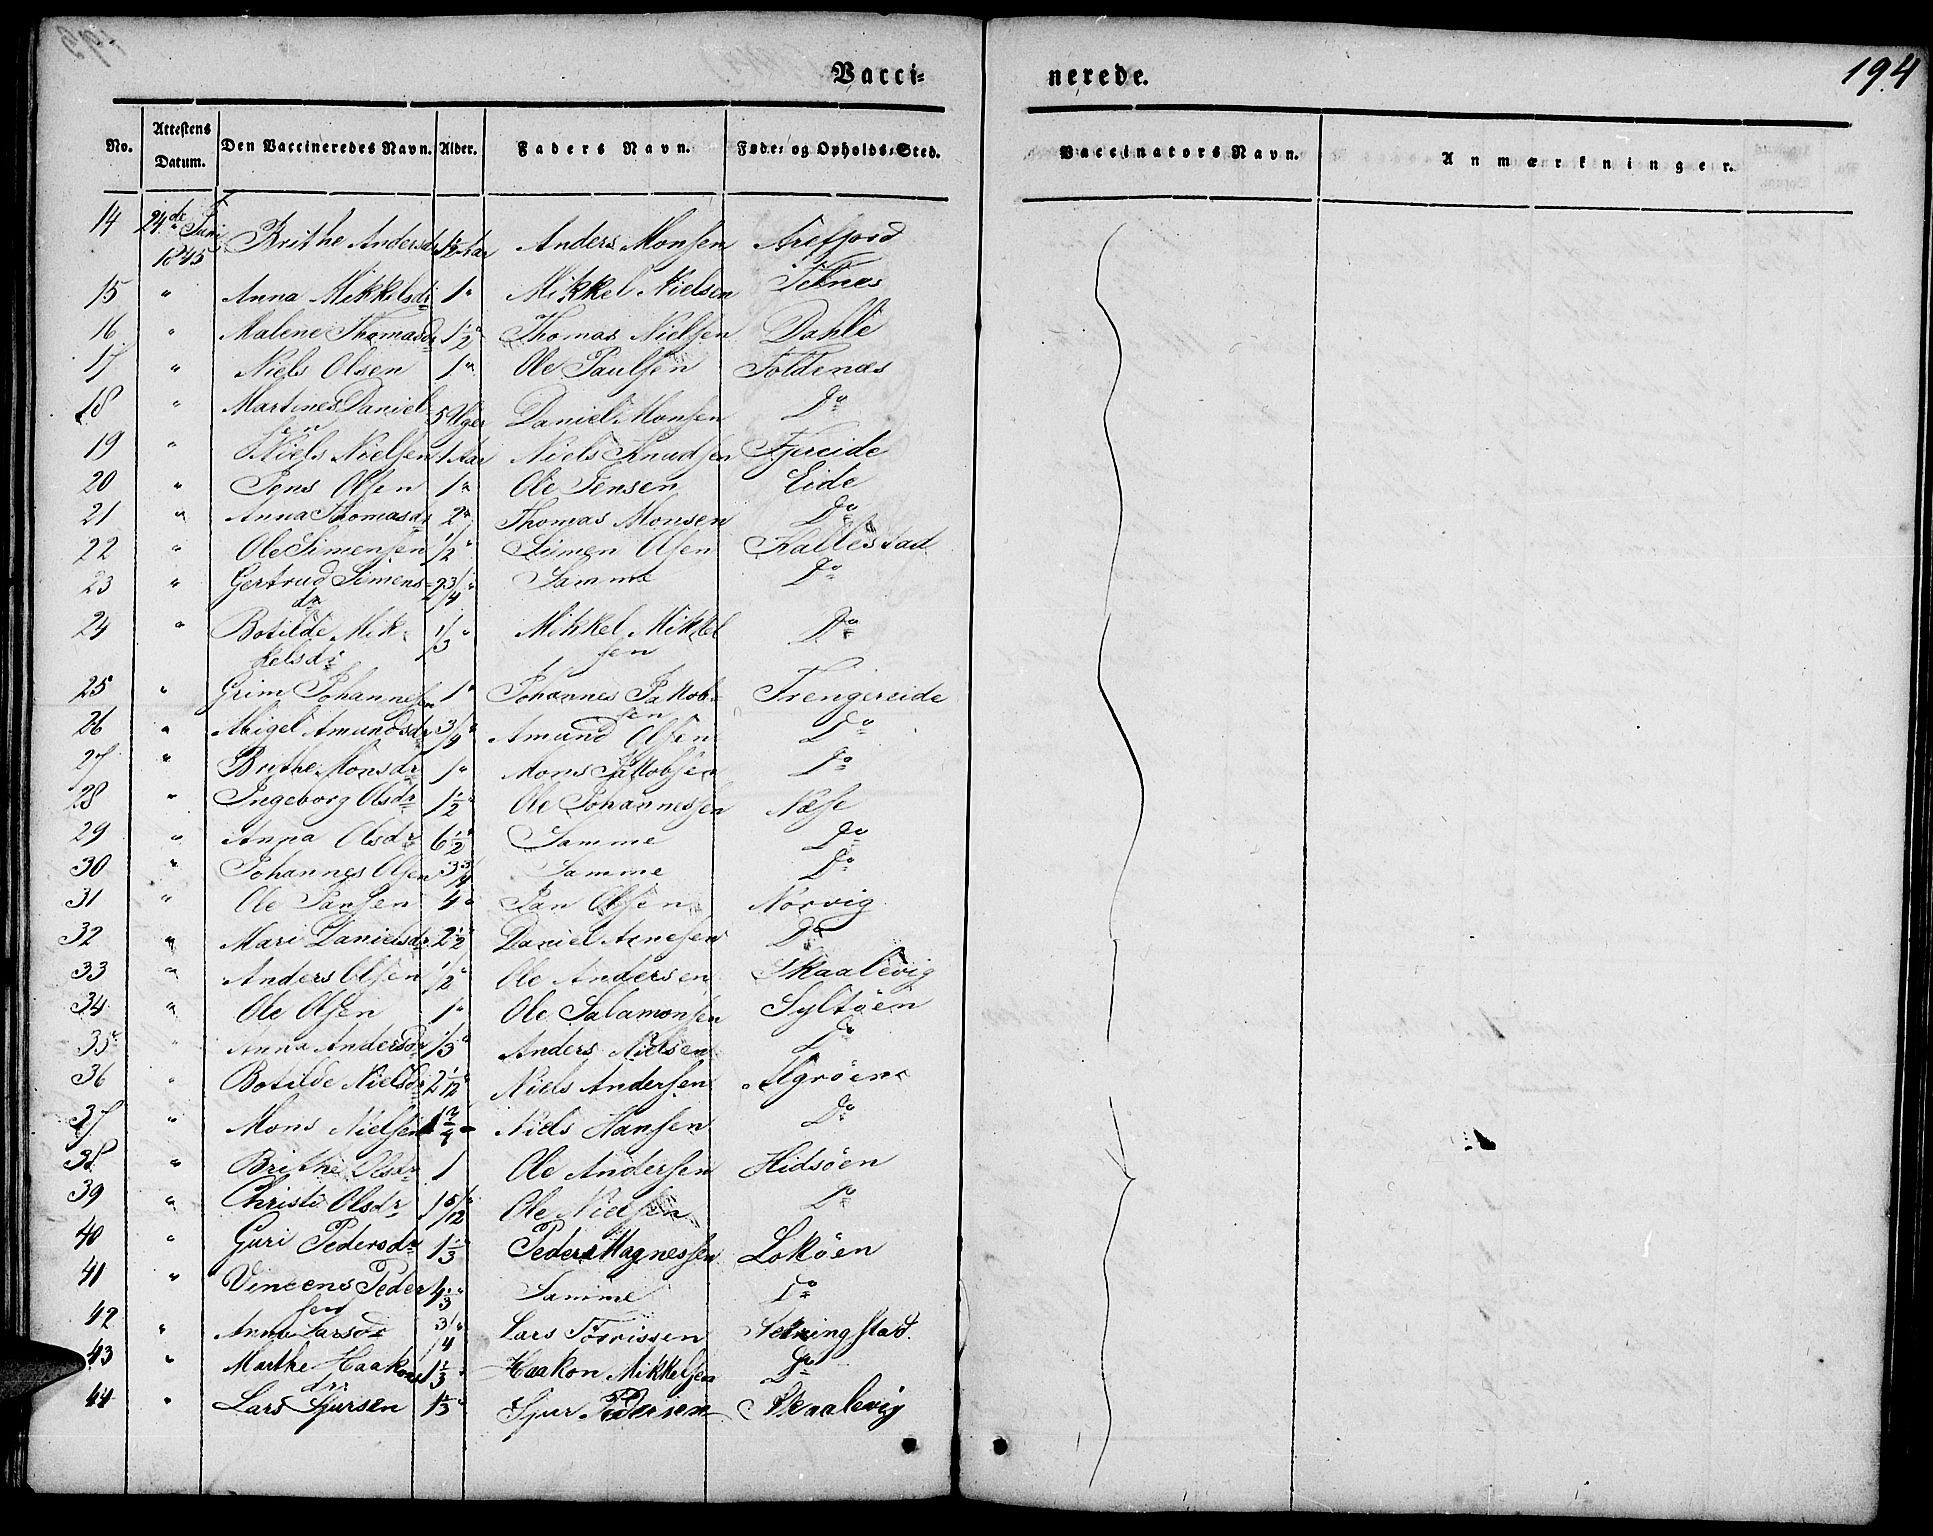 Vacci-nerede.
194
No. Attestens Datum. Den Vaccineredes Navn. Alder. Faders Navn. Føde- og Opholds-Sted. Vaccinators Navn. Anmærkninger.
14 24de Juni 1845 Brithe Andersdr 1½ Aar Anders Monsen Arefjord
15 " Anna Mikkelsdr 1 " Mikkel Nielsen Teknes
16 " Malene Thomasdr 1½ " Thomas Nielsen Dahle
17 " Niels Olsen 1 " Ole Paulsen Foldenæs
18 " Martines Danielsen 5 Uger Daniel Monsen Do
19 " Niels Nielsen 1 Aar Niels Knudsen Fjereide
20 " Jens Olsen 1 " Ole Jensen Eide
21 " Anna Thomasdr 2 " Thomas Monsen Do
22 " Ole Simensen 1/2 " Simen Olsen Kallestad
23 " Gertrud Simensdr 2 3/4 " Samme Do
24 " Botilde Mikkelsdr 1/3 " Mikkel Mikkelsen Do
25 " Grim Johannesen 1 " Johannes Jakobsen Trengereide
26 " Abigel Amundsdr 3/4 " Amund Olsen Do
27 " Brithe Monsdr 1 " Mons Jakobsen Do
28 " Ingeborg Olsdr 1½ " Ole Johannessen Næse
29 " Anna Olsdr 6½ " Samme Do
30 " Johannes Olsen 3 3/4 Samme Do
31 " Ole Jansen 4 " Jan Olsen Norvig
32 " Mari Danielsdr 2½ " Daniel Arnesen Do
33 " Anders Olsen 1/2 " Ole Andersen Skaalevig
34 " Ole Olsen 1 " Ole Salamonsen Syltøen
35 " Anna Andersdr 1/3 " Anders Nielsen Do
36 " Botilde Nielsdr 2 1/12 " Niels Andersen Algrøen
37 " Mons Nielsen 1 3/4 " Niels Hansen Do
38 " Brithe Olsdr 1 Ole Andersen Hidsøen
39 " Christi Olsdr 1 5/12 " Ole Nielsen Do
40 " Guri Pedersdr 1 1/3 " Peder Magnessen Lokøen
41 " Vincens Pedersen 4 1/3 " Samme Do
42 " Anna Larsdr 3/4 " Lars Torrissen Sekkingstad
43 " Marthe Haakonsdr 1 1/3 " Haakon Mikkelsen Do
44 " Lars Sjursen 1 1/3 " Sjur Pedersen Skaalevig